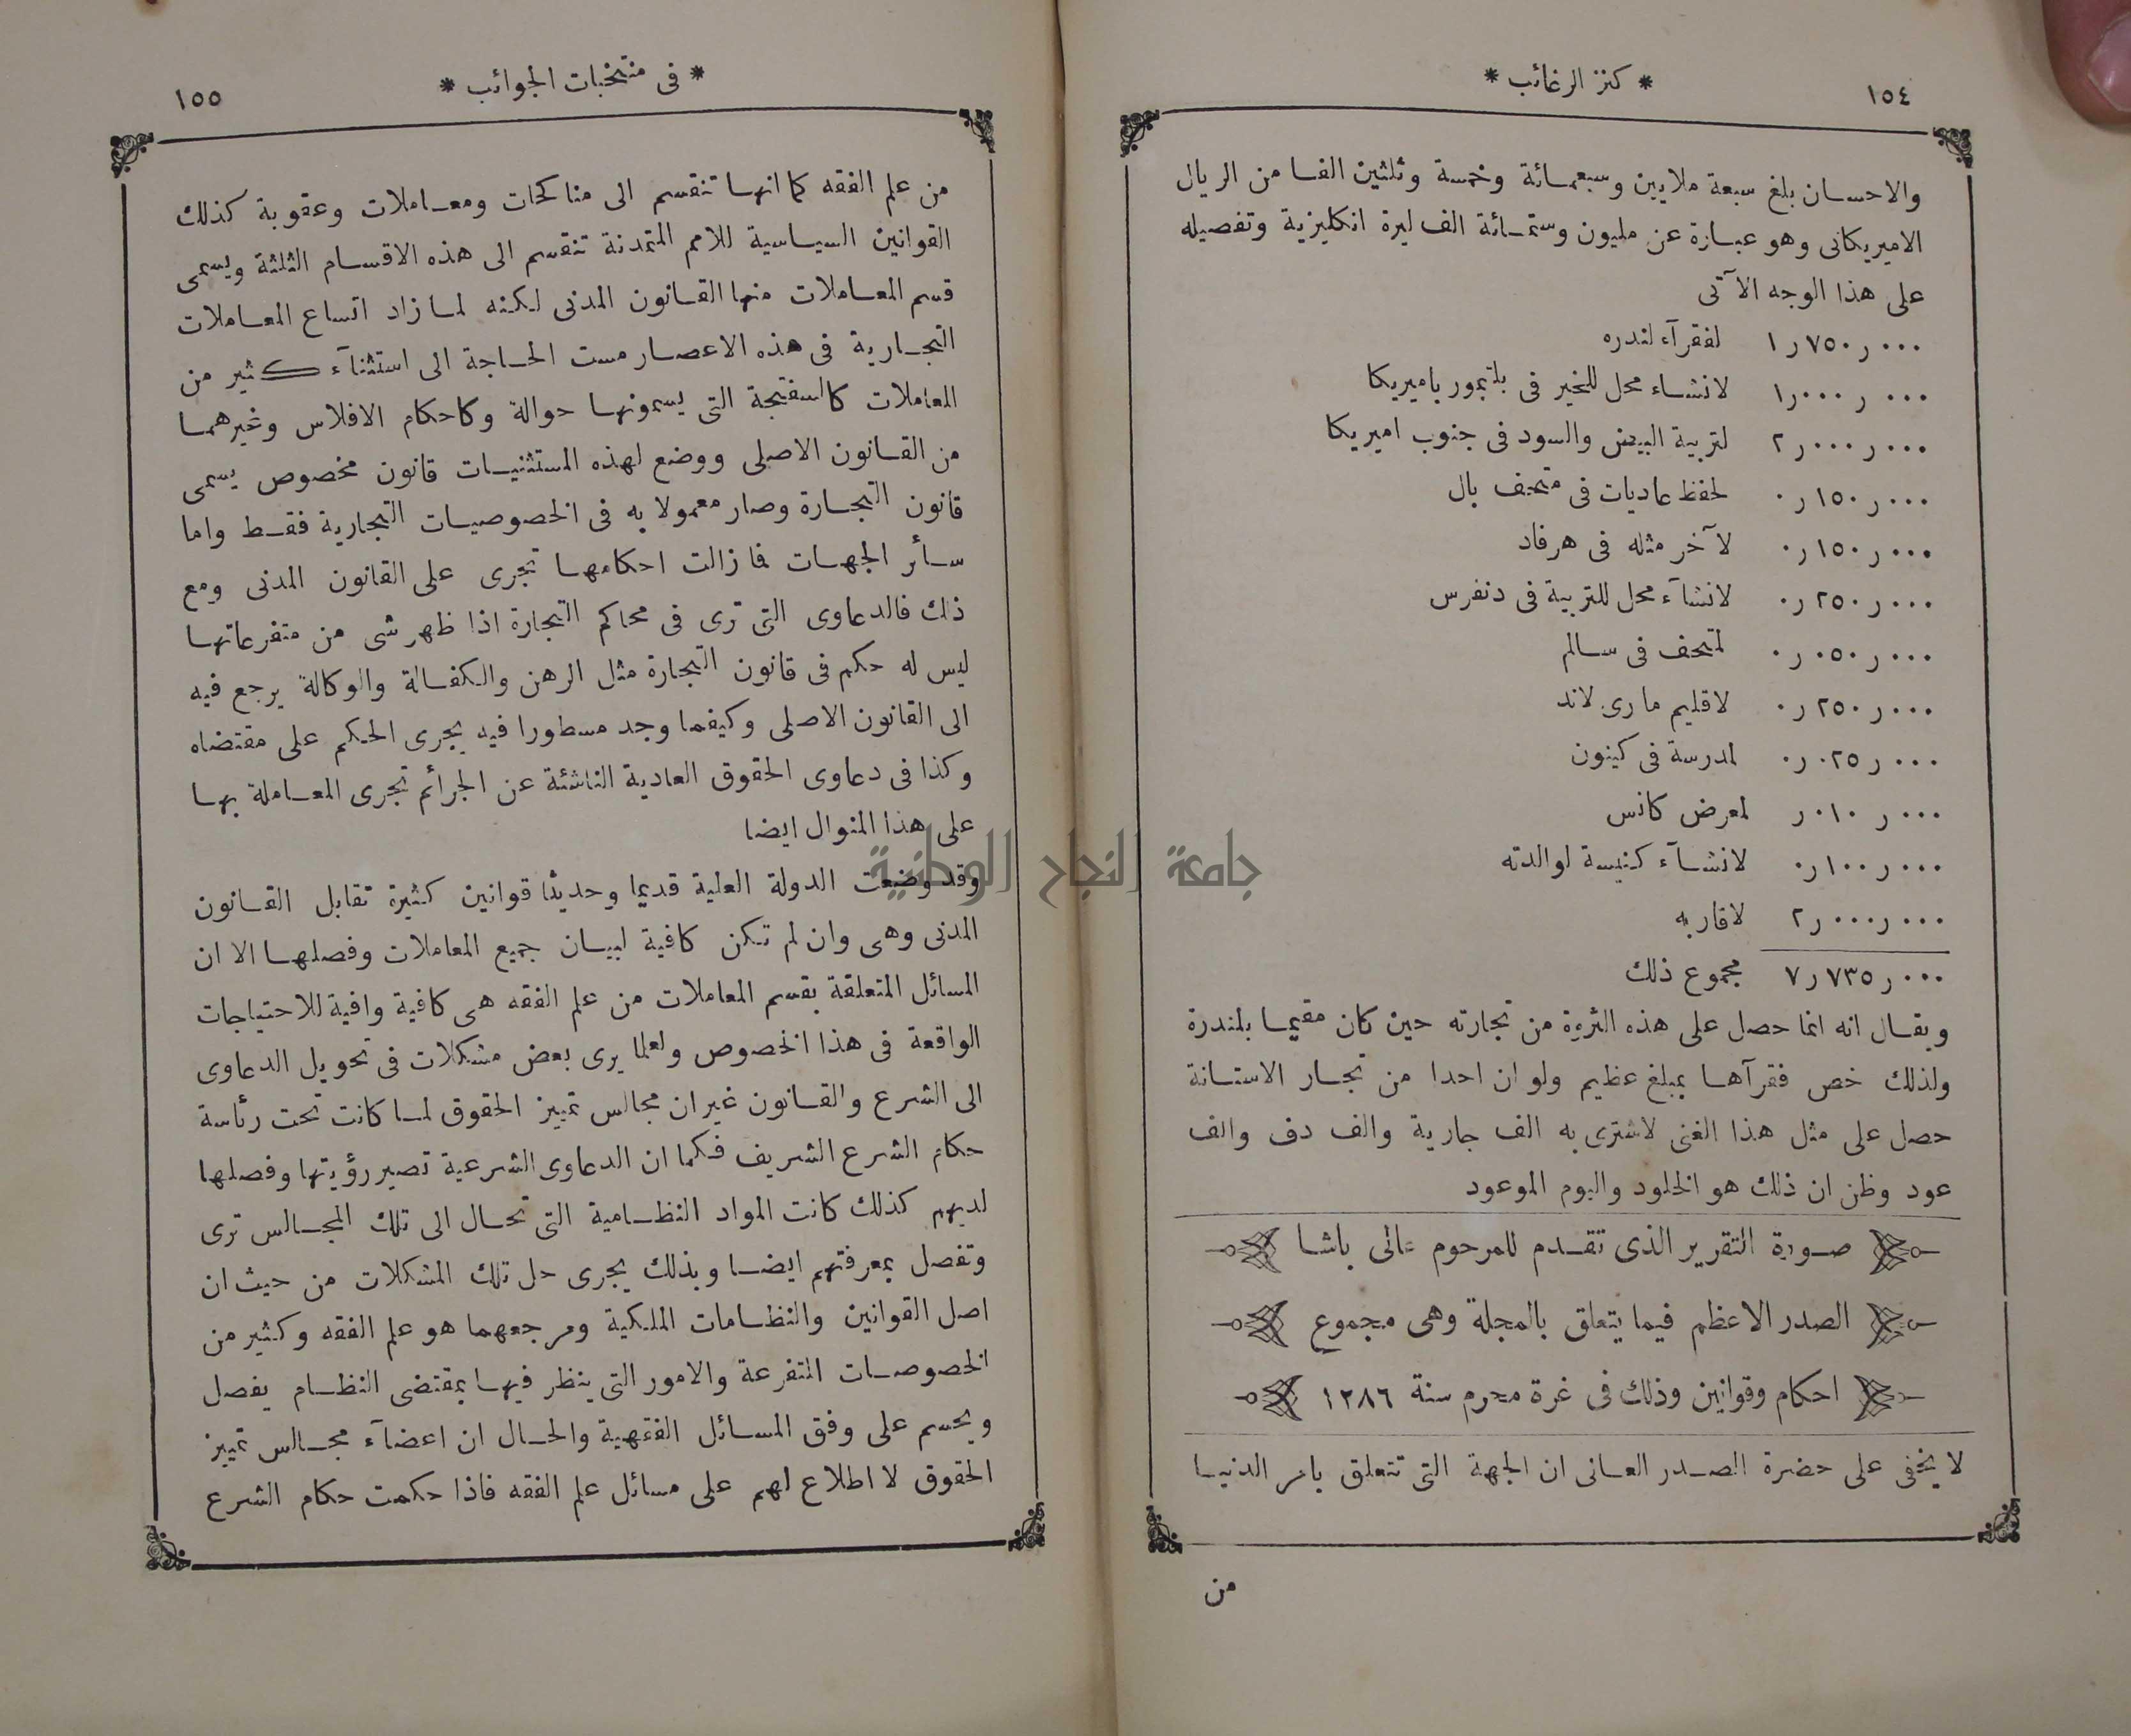 ١٥٤
* كنز الرغائب *
والاحسان بلغ سبعة ملايين وسبعمائة وخمسة وثلثين الفا من الريال
الاميريكانى وهو عبارة عن مليون وستمائة الف ليرة انكليزية وتفصيله
على هذا الوجه الآتى
٠٠٠ر٧٥٠ر١ لفقرآء لندره
٠٠٠ر٠٠٠ر١ لانشاء محل للخير فى بلتيمور باميريكا
٠٠٠ر٠٠٠ر٢ لتربية البيض والسود فى جنوب اميريكا
٠٠٠ر١٥٠ر٠ لحفظ عاديات فى متحف بال
٠٠٠ر١٥٠ر٠ لآخر مثله فى هرفاد
٠٠٠ر٢٥٠ر٠ لانشآء محل للتربية فى دنفرس
٠٠٠ر٠٥٠ر٠ لمتحف فى سالم
٠٠٠ر٢٥٠ر٠ لاقليم مارى لاند
٠٠٠ر٠٢٥ر٠ لمدرسة فى كينون
٠٠٠ر٠١٠ر لمعرض كانس
٠٠٠ر١٠٠ر٠ لانشآء كنيسة لوالدته
٠٠٠ر٠٠٠ر٢ لاقاربه
٠٠٠ر٧٣٥ر٧ مجموع ذلك
ويقال انه انما حصل على هذه الثروة من تجارته حين كان مقيما بلندرة
ولذلك خص فقرآها بمبلغ عظيم ولو ان احدا من تجار الاستانة
حصل على مثل هذا الغنى لاشترى به الف جارية والف دف والف
عود وظن ان ذلك هو الخلود واليوم الموعود
صورة التقرير الذى تقدم للمرحوم عالى باشا
الصدر الاعظم فيما يتعلق بالمجلة وهى مجموع
احكام وقوانين وذلك فى غرة محرم سنة ١٢٨٦
لا يخفى على حضرة الصدر العالى ان الجهة التى تتعلق بامر الدنيا
من
* فى منتخبات الجوائب *
١٥٥
من علم الفقه كما انها تنقسم الى مناكحات ومعاملات وعقوبة كذلك
القوانين السياسية للامم المتمدنة تنقسم الى هذه الاقسام الثلثة ويسمى
قسم المعاملات منها القانون المدنى لكنه لما زاد اتساع المعاملات
التجارية فى هذه الاعصار مست الحاجة الى استثنآء كثير من
المعاملات كالسفتجة التى يسمونها حوالة وكاحكام الافلاس وغيرهما
من القانون الاصلى ووضع لهذه المستثنيات قانون مخصوص يسمى
قانون التجارة وصار معمولا به فى الخصوصيات التجارية فقط واما
سائر الجهات فما زالت احكامها تجرى على القانون المدنى ومع
ذلك فالدعاوى التى ترى فى محاكم التجارة اذا ظهر شى من متفرعاتها
ليس له حكم فى قانون التجارة مثل الرهن والكفالة والوكالة يرجع فيه
الى القانون الاصلى وكيفما وجد مسطورا فيه يجرى الحكم على مقتضاه
وكذا فى دعاوى الحقوق العادية الناشئة عن الجرائم تجرى المعاملة بها
على هذا المنوال ايضا
جامعة النجاح الوطنية
وقد وضعت الدولة العلية قديما وحديثا قوانين كثيرة تقابل القانون
المدنى وهى وان لم تكن كافية لبيان جميع المعاملات وفصلها الا ان
المسائل المتعلقة بقسم المعاملات من علم الفقه هى كافية وافية للاحتياجات
الواقعة فى هذا الخصوص ولعلما يرى بعض مشكلات فى تحويل الدعاوى
الى الشرع والقانون غير ان مجالس تمييز الحقوق لما كانت تحت رئاسة
حكام الشرع الشريف فكما ان الدعاوى الشرعية تصير رؤيتها وفصلها
لديهم كذلك كانت المواد النظامية التى تحال الى تلك المجالس ترى
وتفصل بمعرفتهم ايضا وبذلك يجرى حل تلك المشكلات من حيث ان
اصل القوانين والنظامات الملكية ومرجعهما هو علم الفقه وكثير من
الخصوصات المتفرعة والامور التى ينظر فيها بمقتضى النظام يفصل
ويحسم على وفق المسائل الفقهية والحال ان اعضآء مجالس تمييز
الحقوق لا اطلاع لهم على مسائل علم الفقه فاذا حكمت حكام الشرع